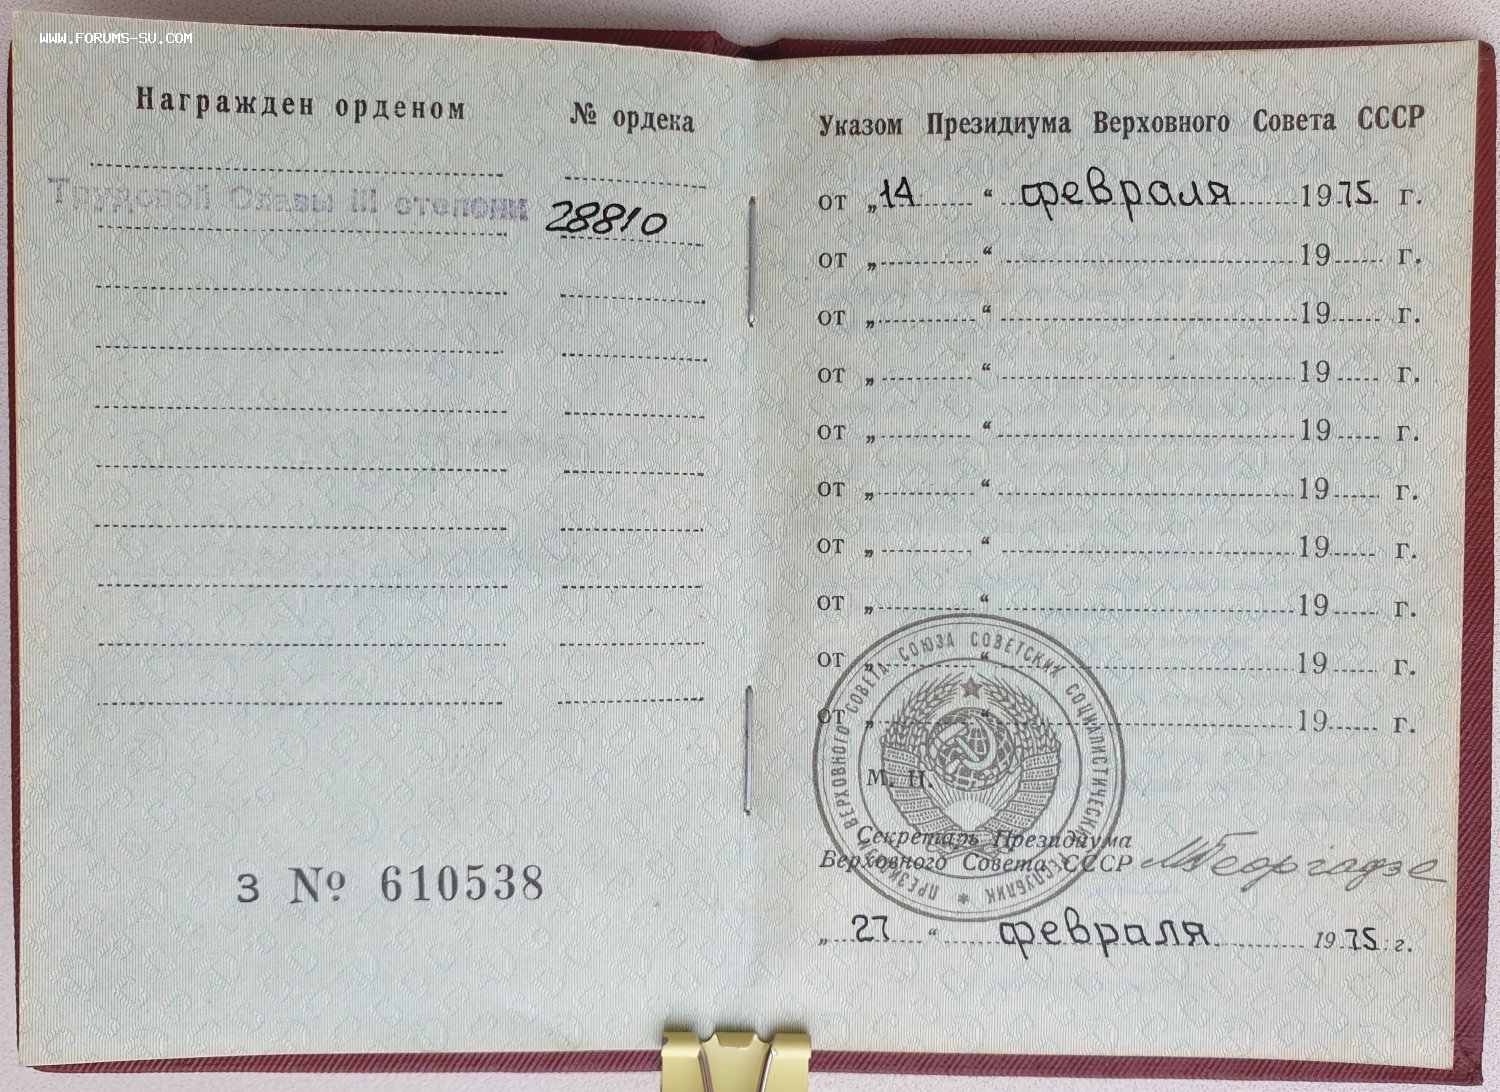 WWW.FORUMS-SU.COM
Награжден орденом
№ ордека
Трудовой Славы III степени
28810
Указом Президиума Верховного Совета СССР
от „14“ февраля 1975 г.
от „ “ 19 г.
от „ “ 19 г.
от „ “ 19 г.
от „ “ 19 г.
от „ “ 19 г.
от „ “ 19 г.
от „ “ 19 г.
от „ “ 19 г.
от „ “ 19 г.
ПРЕЗИДИУМ ВЕРХОВНОГО СОВЕТА СОЮЗА СОВЕТСКИХ СОЦИАЛИСТИЧЕСКИХ РЕСПУБЛИК
М. П.
Секретарь Президиума
Верховного Совета СССР МГеоргадзе
„27“ февраля 1975 г.
З № 610538